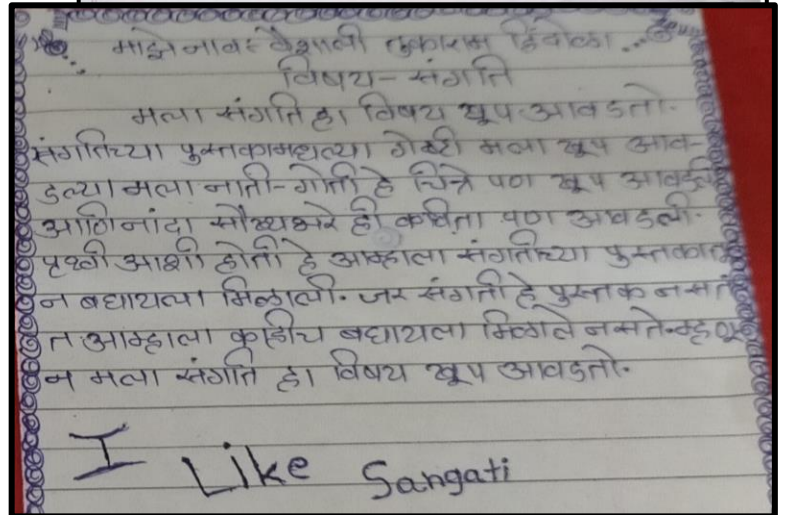 माझे नाव :- वैशाली तुकाराम
विषय - संगति
मला संगति हा विषय खूप आवडतो.
संगतिच्या पुस्तकामधल्या गोष्टी मला खूप आव-
डल्या मला नाती-गोती हे चित्रे पण खूप आवडले
आणि नांदा सौख्यभरे ही कविता पण आवडली.
पृथ्वी आशी होती हे आम्हाला संगतीच्या पुस्तकातु
न बघायला मिळाली. जर संगती हे पुस्तक नसते
त आम्हाला काहीच बघायला मिळाले नसते म्हणू
न मला संगति हा विषय खूप आवडतो.
I Like Sangati